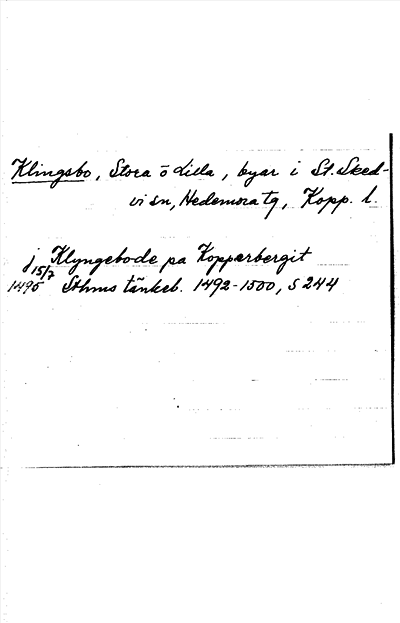 Klingsbo, Stora o Lilla, byar i St. Sked-
vi sn, Hedemora tg, Kopp. l.
j Klyngebode pa Kopparbergit
15/7 1495 Sthms tänkeb. 1492-1500, S 244